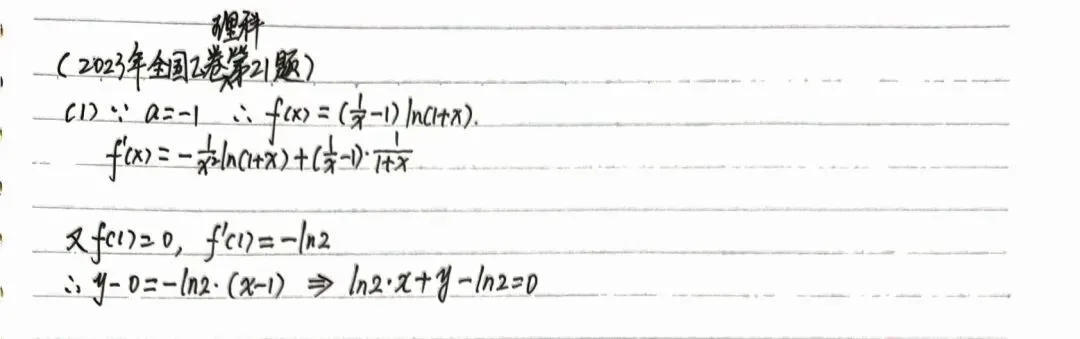 理科
(2023年全国乙卷第21题)
(1) ∵ a=-1 ∴ f(x)=(1/x-1)ln(1+x).
f'(x)=-1/x²ln(1+x)+(1/x-1)·1/1+x
又f(1)=0, f'(1)=-ln2
∴ y-0=-ln2·(x-1) ⇒ ln2·x+y-ln2=0